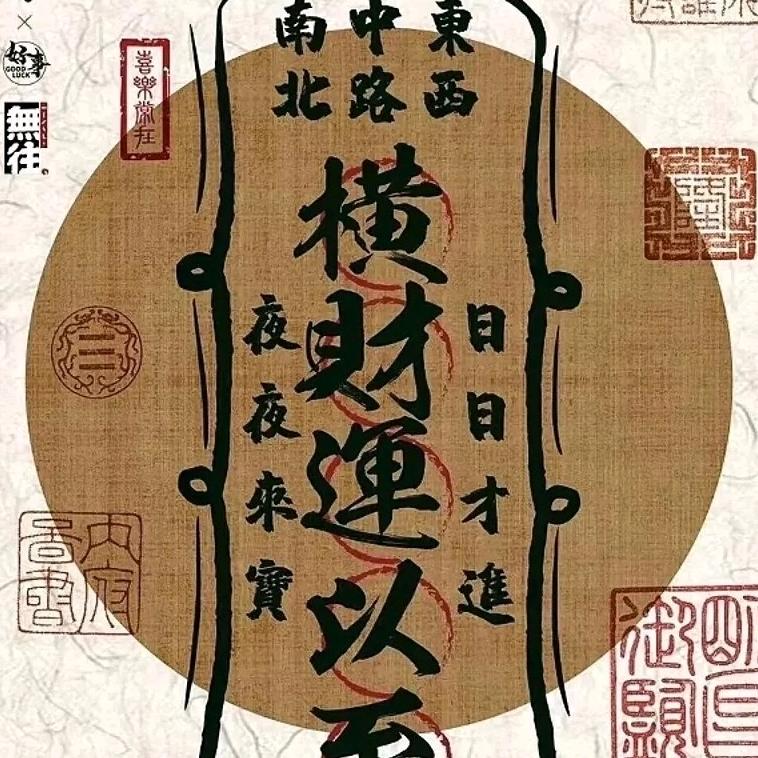 東中南
西路北
橫財運以至
日日才進
夜夜來寶
喜樂常在
好事
GOOD
LUCK
×
無往
內府
吾書
三